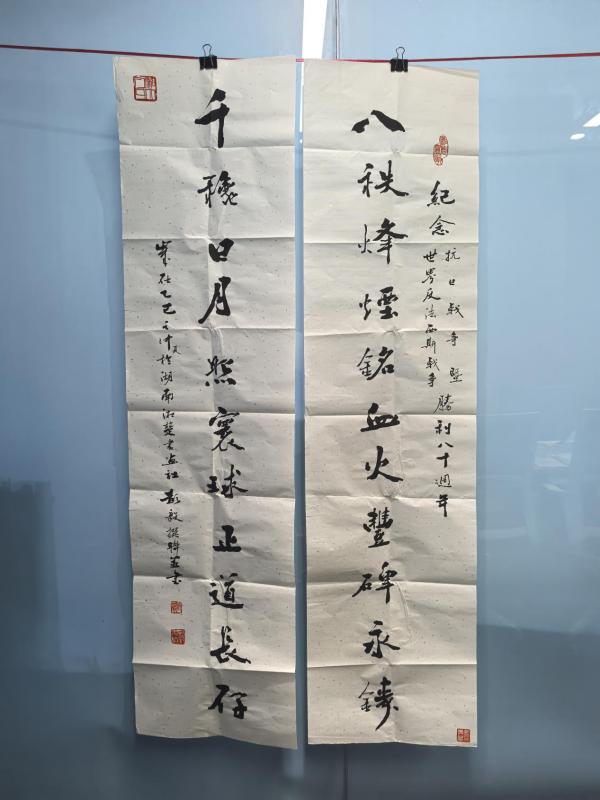 紀念抗日戰争暨世界反法西斯戰争勝利八十週年
八秩烽煙銘血火豐碑永鑄
千穐日月照寰球正道長存
歲在乙巳之仲夏於湖南湘楚書画社彭毅撰聯並書